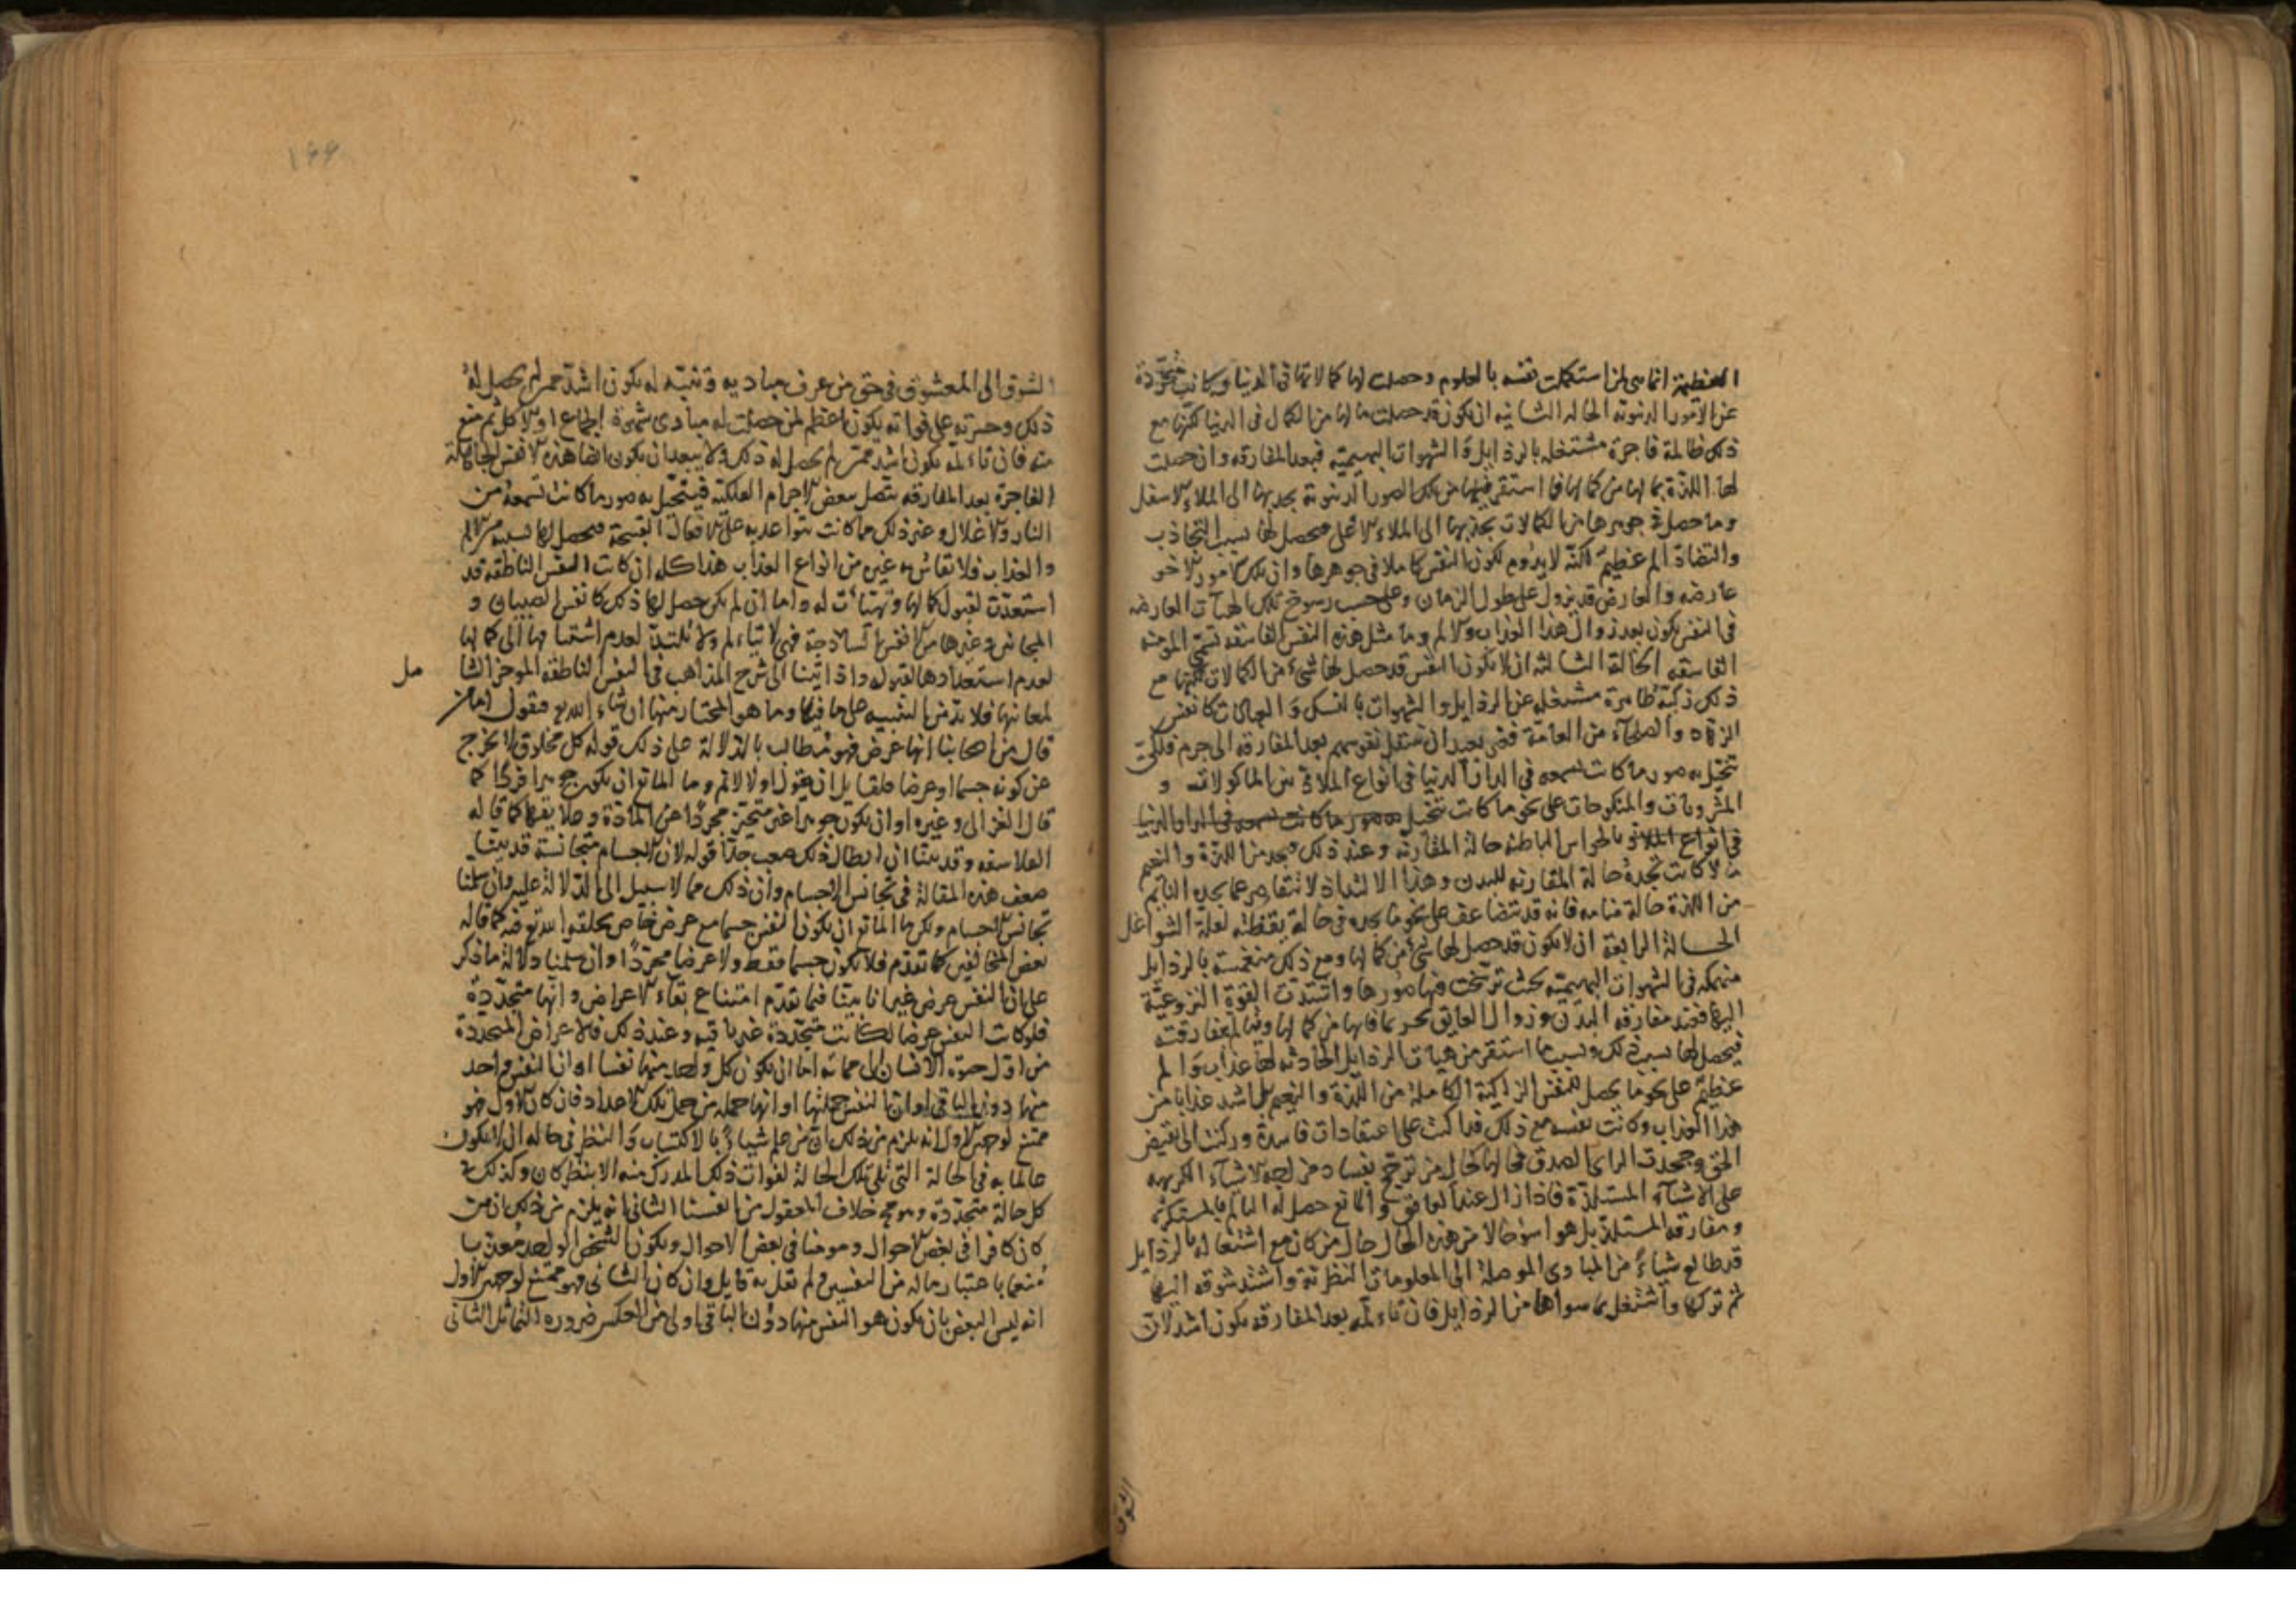 العظيمة انما هى لمن استكملت نفسه بالعلوم وحصلت لها كمالاتها فى الدنيا وكانت متجردة
عن الامور الدنيوية الحالة الثانية ان يكون قد حصلت ما لها من الكمال فى الدنيا لكنها مع
ذلك ظالمة فاجرة مشتغلة بالرذايل والشهوات البهيمية فبعد المفارقة وان حصلت
لها اللذة بما لها من كمالها فما استقر فيها من تلك الصور الدنيوية يجذبها الى الملاء الاسفل
وما حصل فى جوهرها من الكمالات يجذبها الى الملاء الاعلى فيحصل لها بسبب التجاذب
والتضاد الم عظيم لكنه لا يدوم لكون النفس كاملا فى جوهرها وان تلك الامور الاخر
عارضه والعارض قد يزول على طول الزمان وعلى حسب رسوخ تلك الهيآت العارضه
فى النفس يكون بعد زوال هذا العذاب والالم وما مثل هذه النفس الفاسقه تسمى المومنه
الفاسقه الحالة الثالثه ان لا يكون النفس قد حصل لها شىء من الكمالات لكنها مع
ذلك زكية طاهرة مشتغله عن الرذايل والشهوات بالنسك والعبادات كانفس
الزهاد والصلحآء من العامة فغير بعيد ان تنتقل نفوسهم بعد المفارقه الى جرم فلكى
تتخيل به صور ما كانت تسمعه فى الدار الدنيا فى انواع الملاذ من الماكولات و
المشروبات والمنكوحات على نحو ما كانت تتخيل صور ما كانت تسمعه فى الدار الدنيا
فى انواع الملاذ بالحواس الباطنه حالة المقارنه وعند ذلك فيجد من اللذة والنعيم
ما لا كانت تجده حالة المقارنه للبدن وهذا الالتذاذ لا يتقاصر عما يجده النائم
من اللذة حالة منامه فانه قد يتضاعف على نحو ما يجده فى حالة يقظته لقلة الشواغل
الحالة الرابعة ان لا يكون قد حصل لها شىء من كمالها ومع ذلك منغمسة بالرذايل
منهمكه فى الشهوات البهيمية بحيث ترسخت فيها صورها واشتدت القوة النزوعية
اليها فعند مفارقه البدن وزوال العايق بما فاتها من كمالها
فيحصل لها بسبب ذلك وبسبب ما استقر من هيات الرذايل الحادثه لها عذاب والم
عظيم على نحو ما يحصل للنفس الزاكية الكاملة من اللذة والنعيم بل اشد عذابا من
هذا العذاب وكانت نفسه مع ذلك قد اكبت على اعتقادات فاسدة وركنت الى نقيض
الحق وجحدت الراى الصدق فحالها كحال من ترجح بفساد مزاجه الاشيآء الكريهه
على الاشيآء المستلذة فاذا زال عنه العايق والمانع حصل له التالم بالمستكره
ومفارقه المستلذ بل هو اسوء حالا من هذه الحال حال من كان مع اشتغاله بالرذايل
قد طالع شياء من المبادى الموصلة الى المعلومات النظرية واشتد شوقه اليها
ثم تركها واشتغل بما سواها من الرذايل فان تاءلمه بعد المفارقه يكون اشد لان
الشوق
١٩٩
الشوق الى المعشوق فى حق من عرف مباديه وتنبه له يكون اشد ممن لم يحصل له
ذلك وحسرته على فواته يكون اعظم كمن حصلت له مبادى شهوة الجماع او الاكل ثم منع
منه فان تاءلمه يكون اشد ممن لم يحصل له ذلك ولا يبعد ان يكون ايضا هذه الانفس الجاهلة
الفاجرة بعد المفارقه يتصل ببعض الاجرام الفلكية فيتخيل به صور ما كانت تسمعه من
النار والاغلال وغير ذلك مما كانت تتواعد به على الافعال القبيحة فيحصل لها بسببه من الالم
والعذاب فلا تقاس به غيره من انواع العذاب هذا كله ان كانت النفس الناطقه قد
استعدت لقبول كمالها وتهيات له واما ان لم يكن حصل لها ذلك كانفس الصبيان و
المجانين وغيرها من الانفس الساذجة فهى لا تتاءلم ولا تلتذ لعدم اشتياقها الى كمالها
لعدم استعدادها لقبوله واذ اتينا الى شرح المذاهب فى النفس الناطقه الموجز الشا
مل
لمعانيها فلا بد من التنبيه على ما فيها وما هو المختار منها ان شاء الله تع فنقول اما من
قال من اصحابنا انها عرض فهو مطالب بالدلالة على ذلك قوله كل مخلوق لا يخرج
عن كونه جسما او عرضا فلقايل ان يقول اولا لا نم وما المانع ان يكون جوهرا فردا كما
قال الغزالى وغيره او ان يكون جوهرا غير متحيز مجردا عن المادة وعلايقها كما قاله
الفلاسفه وقد بينا ان ابطال ذلك صعب جدا قوله لان الاجسام متجانسة قد بينا
ضعف هذه المقالة فى تجانس الاجسام وان ذلك مما لا سبيل الى الدلالة عليه وان سلمنا
تجانس الاجسام ولكن ما المانع ان يكون النفس جسما مع عرض خاص يخلقه الله تع فيه كما قاله
بعض المخالفين كما تقدم فلا يكون جسما فقط ولا عرضا مجردا وان سلمنا دلالة ما ذكر
على ان النفس عرض غير انا بينا فيما تقدم امتناع بقاء الاعراض وانها متجددة
فلو كانت النفس عرضا لكانت متجددة غير باقيه وعند ذلك فالاعراض المتجددة
من اول حيوة الانسان الى مماته اما ان يكون كل واحد منها نفسا او ان النفس واحد
منها دون الباقى او ان النفس جملتها او انها جمله من جمل تلك الاعداد فان كان الاول فهو
ممتنع لوجهين الاول انه يلزم من ذلك ان من علم شياء بالاكتساب والنظر فى حاله ان لا يكون
عالما به فى الحالة التى تلى تلك الحالة لفوات ذلك المدرك منه الا بنظر كان وكذلك فى
كل حالة متجددة وهو خلاف المعقول من انفسنا الثانى انه يلزم من ذلك ان من
كان كافرا فى بعض الاحوال ومومنا فى بعض الاحوال ويكون الشخص الواحد معذبا
منعما باعتبار ماله من النفسين ولم يقل به قايل وان كان الثانى فهو ممتنع لوجهين الاول
انه ليس البعض بان يكون هو النفس منها دون الباقى اولى من العكس ضروره التماثل الثانى